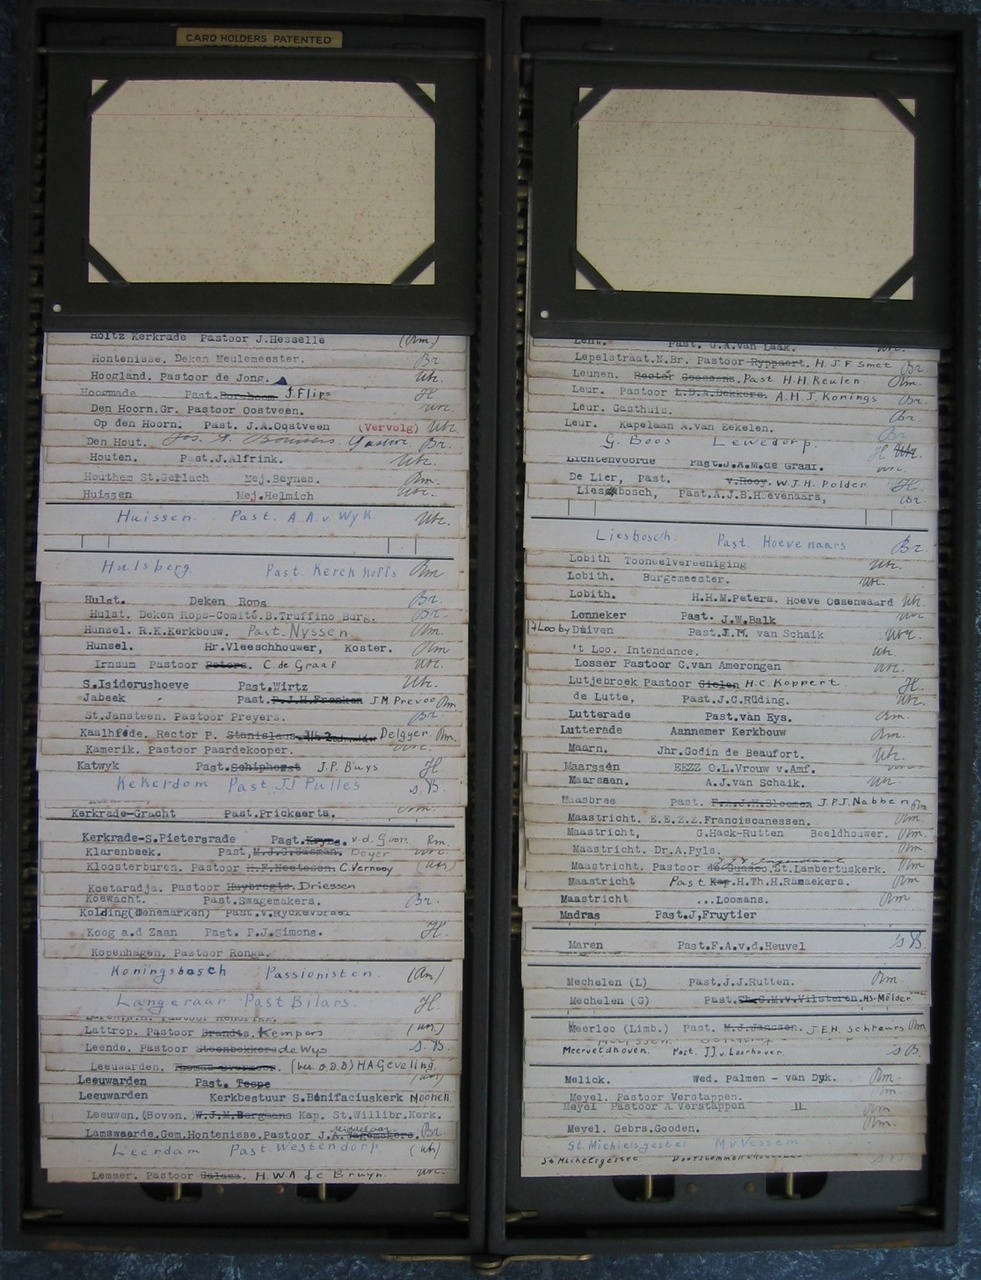 CARD HOLDERS PATENTED
Holtz Kerkrade Pastoor J.Hesselle (Rm)
Hontenisse. Deken Meulemeester. Br.
Hoogland. Pastoor de Jong. Utr.
Hoogmade Past. J.Flips H
Den Hoorn.Gr. Pastoor Oostveen. Utr.
Op den Hoorn. Past. J.A.Oostveen (Vervolg) Utr.
Den Hout. Jos. A. Pastoor Br.
Houten. Past.J.Alfrink. Utr.
Houthem St.Gerlach Mej.Beynes. Rm.
Huissen Mej.Helmich Utr.
Huissen Past. A A v Wyk Utr.
Hulsberg. Past. Kerckhoffs Rm
Hulst. Deken Rops Br.
Hulst. Deken Rops-Comité.B.Truffino Burg. Br.
Hunsel. R.K.Kerkbouw. Past. Nyssen Rm
Hunsel. Hr.Vleeschhouwer, Koster. Rm
Irnsum Pastoor Peters. C. de Graaf Utr.
S.Isidorushoeve Past.Wirtz Utr.
Jabeek Past. P.J.H.Frenken J.M.Prevoo Rm
St.Jansteen. Pastoor Preyers. Br
Kaalheide. Rector P. Stanislaus Delgyer. Rm.
Kamerik. Pastoor Paardekooper.
Katwyk Past. Schiphorst J.P. Buys H
Kekerdom Past JJ Pulles s.B.
Kerkrade-Gracht Past.Prickaerts.
Kerkrade-S.Pietersgrade Past. v.d. Rm.
Klarenbeek. Past,
Kloosterburen. Pastoor C.Vernooy (utr)
Koetaradja. Pastoor Huybregts. Driessen
Koewacht. Past.Swagemakers. Br.
Kolding(Denemarken) Past.v.Ryckevorsel
Koog a.d Zaan Past. P.J.Simons. H.
Kopenhagen. Pastoor
Koningsbosch Passionisten. (Rm)
Langeraar Past Bilars. H.
Lattrop. Pastoor Brandts. Kempers
Leende. Pastoor Steenbekkers de Wys s.B.
Leeuwarden. (bev. O.D.D) H.A. Geveling.
Leeuwarden Past. Teepe
Leeuwarden Kerkbestuur S.Bonifaciuskerk Moonen.
Leeuwen.(Boven.) W.J.M.Bergmans Kap. St.Willibr.Kerk.
Lamswaarde.Gem.Hontenisse.Pastoor J.A. Br
Leerdam Past.Westendorp (utr)
Lemmer. Pastoor H.W.A de Bruyn. Utr.
Lent. Past. G.A.van Laak.
Lepelstraat.N.Br. Pastoor Ryppaert. H.J.F.Smet Br
Leunen. Rector Goossens. Past H.H.Keulen Rm.
Leur. Pastoor L.D.A.Dekkers. A.H.J.Konings Br.
Leur. Gasthuis. Br
Leur. Kapelaan A.van Eekelen. Br.
G. Boos Lewedorp. H Utr.
Lichtenvoorde Past.J.A.M.de Graaf.
De Lier, Past. v.Rooy. W.J.H.Polder H
Liesbosch, Past.A.J.B.H.evenaars, Br.
Liesbosch. Past. Hoevenaars Br.
Lobith Tooneelvereeniging Utr.
Lobith. Burgemeester. Utr.
Lobith. H.H.M.Peters. Hoeve Ossenwaard Utr
Lonneker Past. J.W.Balk Utr
't Loo by Duiven Past.J.M. van Schaik Utr.
't Loo. Intendance. Utr
Losser Pastoor C.van Amerongen Utr.
Lutjebroek Pastoor Gielen H.C.Koppert H.
de Lutte, Past.J.G.Rüding. Utr.
Lutterade Past.van Eys. Rm.
Lutterade Aannemer Kerkbouw Rm.
Maarn. Jhr.Godin de Beaufort. Utr.
Maarssen EEZZ O.L.Vrouw v.Amf.
Maarssen. A.J.van Schaik. Utr
Maasbree Past. J.P.J.Nabben Rm
Maastricht. E.E.Z.Z.Franciscanessen. Rm
Maastricht, G.Hack-Rutten Beeldhouwer. Rm.
Maastricht. Dr.A.Pyls. Rm.
Maastricht. Pastoor St.Lambertuskerk. Rm
Maastricht Past H.Th.H.Ramaekers. Rm
Maastricht ...Loomans. Rm
Madras Past.J,Fruytier
Maren Past.F.A.v.d.Heuvel s B
Mechelen (L) Past.J.J.Rutten. Rm.
Mechelen (G) Past. Th.G.M.V.Vilsteren. Hs.Mölder
Meerloo (Limb.) Past. M.J.Janssen. J.E.H. Scheurs Rm
Meerveldhoven. Past. JJ v. Loerhoven s B.
Melick. Wed. Palmen - van Dyk. Rm.
Meyel. Pastoor Verstappen. Rm.
Meyel Pastoor A Verstappen II Rm
Meyel. Gebrs.Gooden. Rm.
St.Michielsgestel M.v.Vessem
St Michielsgestel